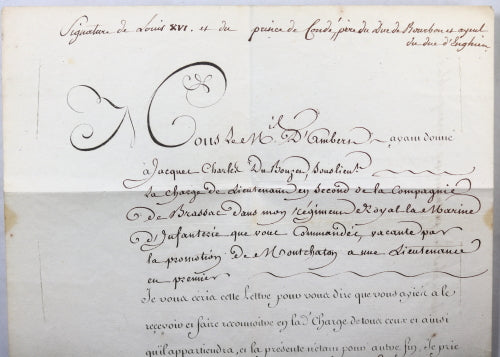 Signature de Louis XVI. et du prince de Condé, père du Duc de Bourbon et ayeul
du duc d'Enghien
Mons. le M.is D'Ambert ayant donné
à Jacques Charles Du Bouzen Souslieut.
La charge de Lieutenant en Second de la Compagnie
de Brassac dans mon Régiment Royal la Marine
d'Infanterie que vous Commandés, vacante par
la promotion de Montchaton a une Lieutenance
en premier
Je vous écris cette Lettre pour vous dire que vous ayiés à le
recevoir et faire reconnoitre en lad. Charge de tous ceux et ainsi
qu'il appartiendra, et la présente n'étant pour autre fin, Je prie